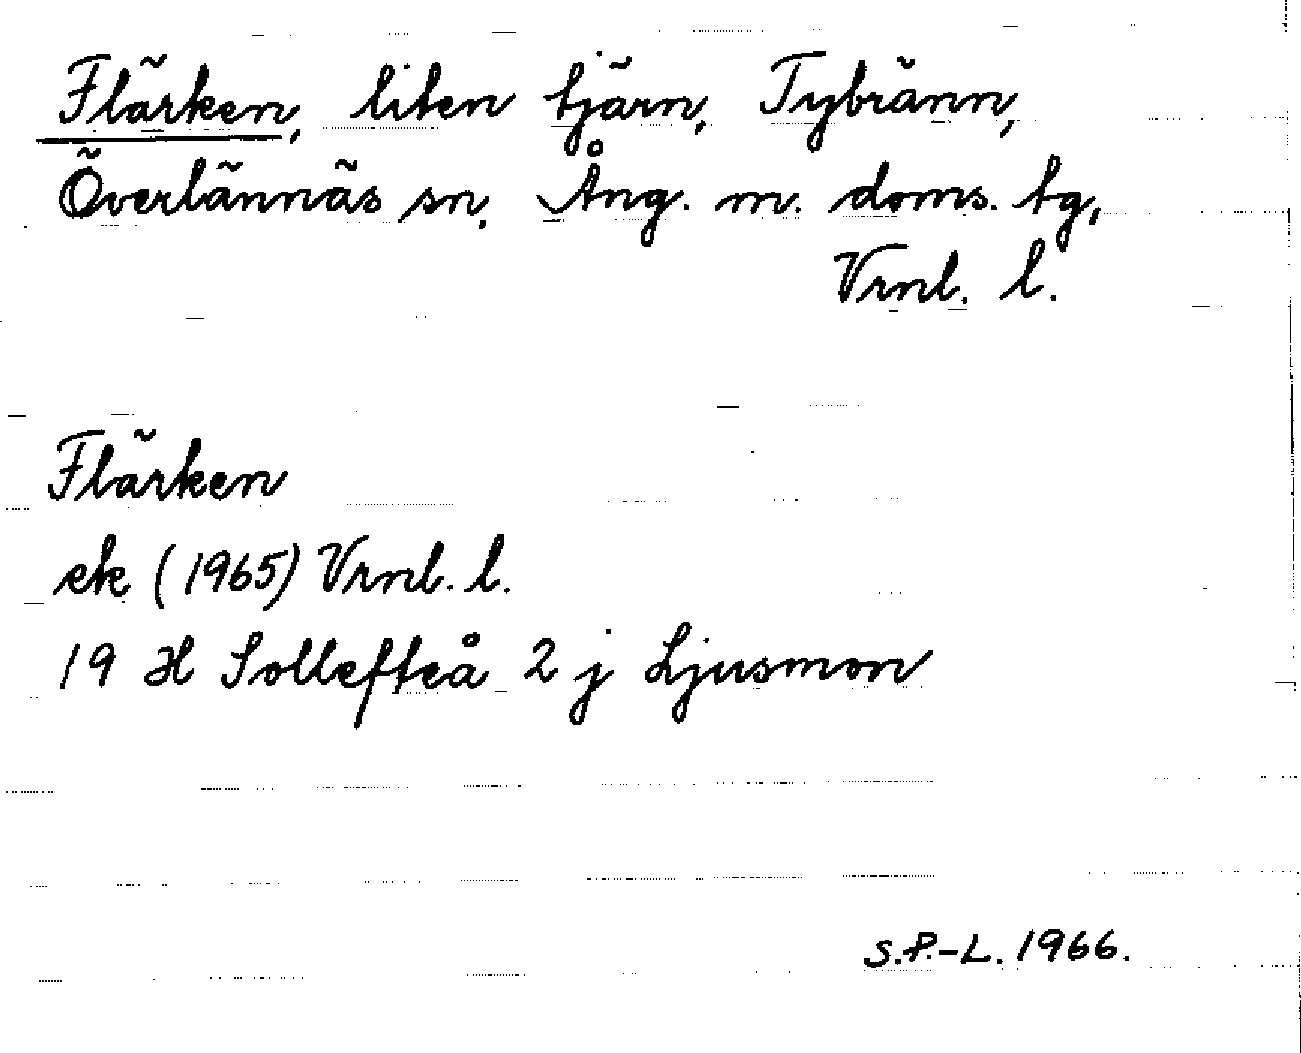 Flärken, liten tjärn, Tybränn,
Överlännäs sn, Ång. m. doms. tg,
Vrnl. l.
Flärken
ek (1965) Vrnl. l.
19 H Sollefteå 2 j Ljusmon
S.P.-L. 1966.